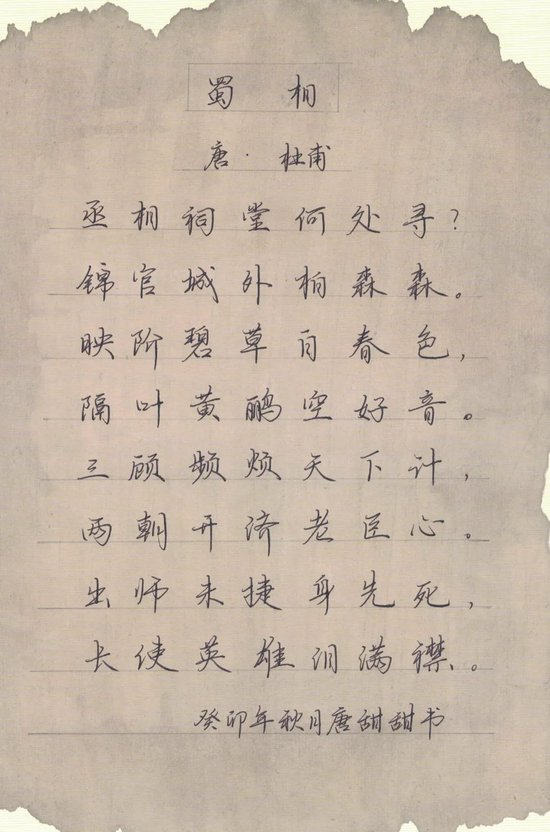 蜀相
唐·杜甫
丞相祠堂何处寻？
锦官城外柏森森。
映阶碧草自春色，
隔叶黄鹂空好音。
三顾频烦天下计，
两朝开济老臣心。
出师未捷身先死，
长使英雄泪满襟。
癸卯年秋月唐甜甜书